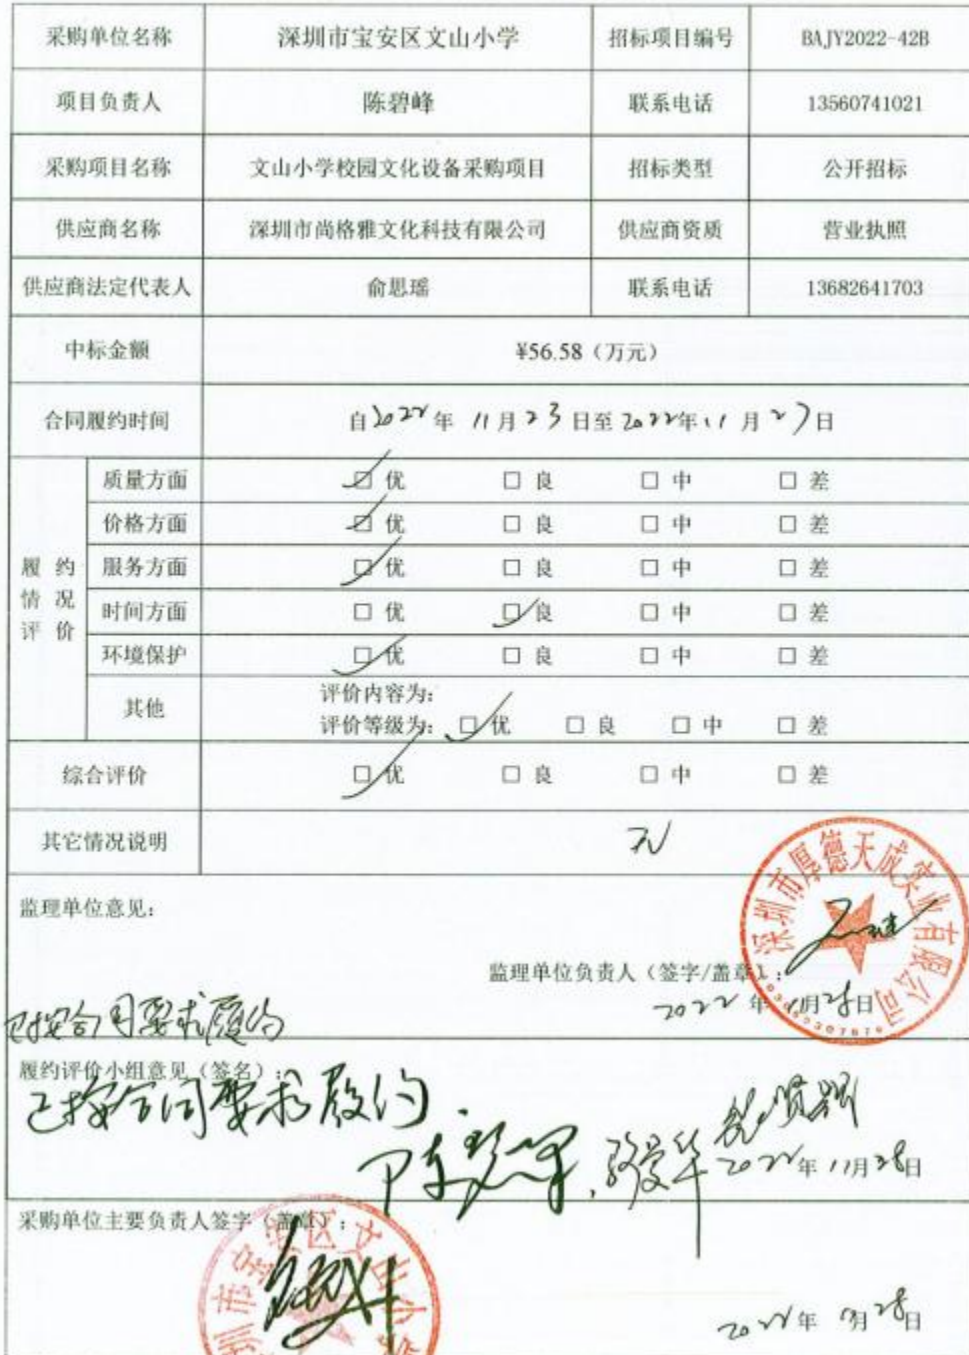 采购单位名称 深圳市宝安区文山小学 招标项目编号 BAJY2022-42B
项目负责人 陈碧峰 联系电话 13560741021
采购项目名称 文山小学校园文化设备采购项目 招标类型 公开招标
供应商名称 深圳市尚格雅文化科技有限公司 供应商资质 营业执照
供应商法定代表人 俞思瑶 联系电话 13682641703
中标金额 ¥56.58（万元）
合同履约时间 自2022年 11月23日至2022年11月27日
履约情况评价
质量方面 ☑ 优 □ 良 □ 中 □ 差
价格方面 ☑ 优 □ 良 □ 中 □ 差
服务方面 ☑ 优 □ 良 □ 中 □ 差
时间方面 □ 优 ☑ 良 □ 中 □ 差
环境保护 ☑ 优 □ 良 □ 中 □ 差
其他 评价内容为:
评价等级为: ☑ 优 □ 良 □ 中 □ 差
综合评价 ☑ 优 □ 良 □ 中 □ 差
其它情况说明 无
监理单位意见:
深圳市厚德天成实业有限公司
监理单位负责人（签字/盖章）:
2022年11月28日
已按合同要求履约
履约评价小组意见（签名）:
已按合同要求履约.
陈碧峰
2022年11月28日
采购单位主要负责人签字（盖章）:
圳市宝安区文山小
2022年11月28日